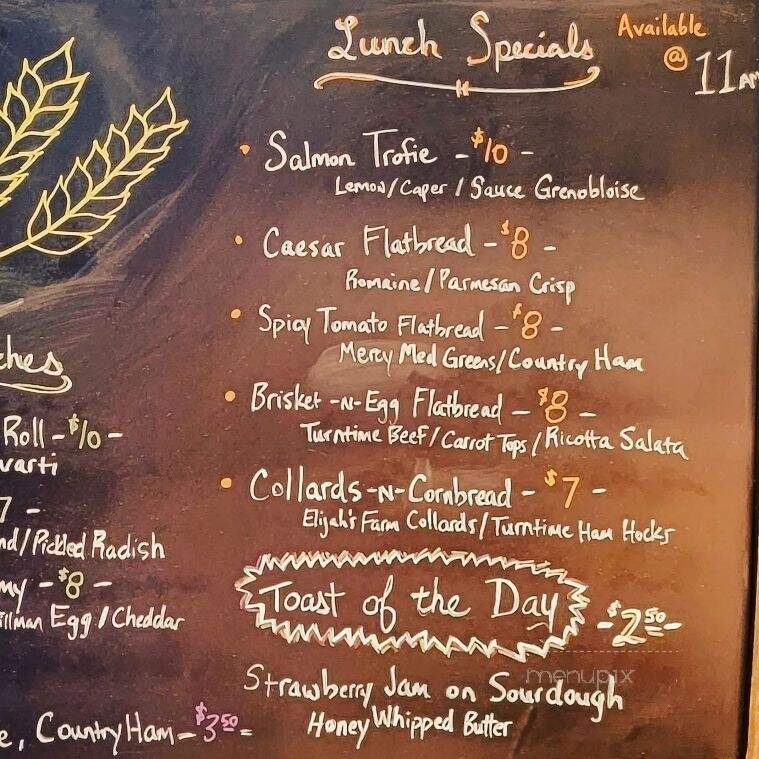 Lunch Specials
Available
@ 11AM
• Salmon Trofie - $10 -
Lemon/Caper / Sauce Grenobloise
• Caesar Flatbread - $8 -
Romaine/Parmesan Crisp
• Spicy Tomato Flatbread - $8 -
Mercy Med Greens/Country Ham
• Brisket -N- Egg Flatbread - $8 -
Turntime Beef/Carrot Tops/Ricotta Salata
• Collards -N- Cornbread - $7 -
Elijah's Farm Collards/Turntime Ham Hocks
Toast of the Day - $2.50 -
Strawberry Jam on Sourdough
Honey Whipped Butter
ches
Roll - $10 -
varti
7 -
nd/Pickled Radish
my - $8 -
illman Egg / Cheddar
e, Country Ham - $3.50 -
menupix